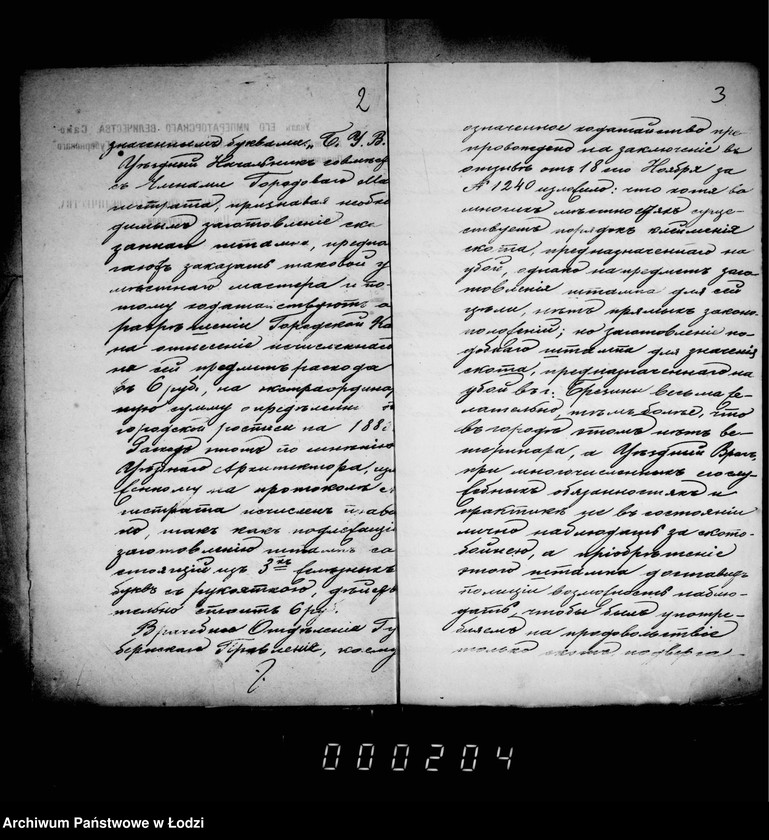 2
значеннымъ буквами „Б. У. В.
Уѣздный Начальникъ совмѣс
съ Чинами Городоваго Ма
гистрата, признавая необхо
димымъ заготовленіе ска
заннаго штампа, предпо
лагаютъ заказать таковой у
мѣстнаго мастера и по-
тому ходатайствуютъ о
разрѣшеніи Городской Ка
на отнесеніе исчисленнаго
на сей предметъ расхода
въ 6 руб., на экстраординар
ную сумму опредѣленн
городской росписи на 188
Расходъ этотъ по мнѣнію
Уѣзднаго Архитектора, изъя
вленному на протоколѣ
гистрата исчисленъ правиль
но, такъ какъ подлежащій
заготовленію штампъ со
стоящій изъ 3хъ желѣзныхъ
буквъ съ рукояткою, дѣйст
тельно стоитъ 6 руб.
Врачебное Отдѣленіе Гу
бернскаго Правленія, коему
3
означенное ходатайство пре
провождено на заключеніе въ
отзывѣ отъ 18го Ноября за
№ 1240 изъяснило: что хотя во
многихъ мѣстностяхъ суще-
ствуетъ порядокъ клейменія
скота, предназначеннаго на
убой, однако на предметъ заго
товленія штампа для сей
цѣли, нѣтъ прямыхъ законо-
положеній; но заготовленіе по-
добнаго штампа для значенія
скота, предназначеннаго на
убой въ г. Брезинахъ весьма же-
лательно, тѣмъ болѣе, что
въ городѣ этомъ нѣтъ ве-
теринара, а Уѣздный Врачъ,
при многочисленныхъ служе-
бныхъ обязанностяхъ и
практикѣ не въ состояніи
лично наблюдать за ското-
бойнею, а пріобрѣтеніе
этого штампа доставитъ
полиціи возможность наблю-
дать, чтобы былъ употре-
бляемъ на продовольствіе
только скотъ, подверга-
000204
Archiwum Państwowe w Łodzi